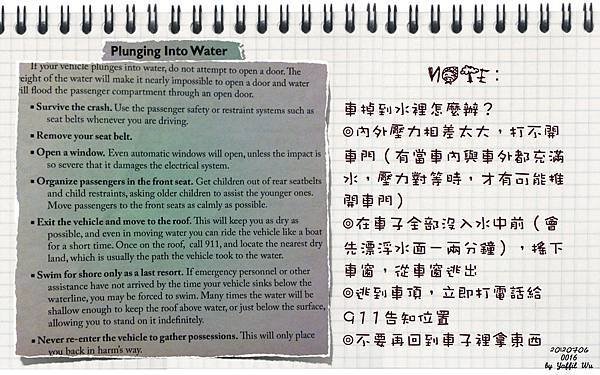 Plunging Into Water
If your vehicle plunges into water, do not attempt to open a door. The
eight of the water will make it nearly impossible to open a door and water
ill flood the passenger compartment through an open door.
▪ Survive the crash. Use the passenger safety or restraint systems such as
seat belts whenever you are driving.
▪ Remove your seat belt.
▪ Open a window. Even automatic windows will open, unless the impact is
so severe that it damages the electrical system.
▪ Organize passengers in the front seat. Get children out of rear seatbelts
and child restraints, asking older children to assist the younger ones.
Move passengers to the front seats as calmly as possible.
▪ Exit the vehicle and move to the roof. This will keep you as dry as
possible, and even in moving water you can ride the vehicle like a boat
for a short time. Once on the roof, call 911, and locate the nearest dry
land, which is usually the path the vehicle took to the water.
▪ Swim for shore only as a last resort. If emergency personnel or other
assistance have not arrived by the time your vehicle sinks below the
waterline, you may be forced to swim. Many times the water will be
shallow enough to keep the roof above water, or just below the surface,
allowing you to stand on it indefinitely.
▪ Never re-enter the vehicle to gather possessions. This will only place
you back in harm's way.
NOTE:
車掉到水裡怎麼辦？
◎內外壓力相差太大，打不開
車門（有當車內與車外都充滿
水，壓力對等時，才有可能推
開車門）
◎在車子全部沒入水中前（會
先漂浮水面一兩分鐘），搖下
車窗，從車窗逃出
◎逃到車頂，立即打電話給
911告知位置
◎不要再回到車子裡拿東西
20120706
0016
by Yaffil Wu